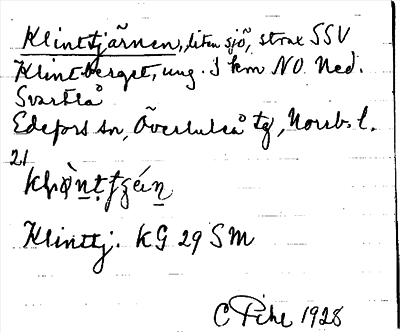 Klinttjärnen, liten sjö, strax SSV
Klintberget, ung. 3 km NO Ned.
Svartlå
Edefors sn, Överluleå tg, Norrb. l.
21
Klinttj. KG 29 SM
C Pihl 1928